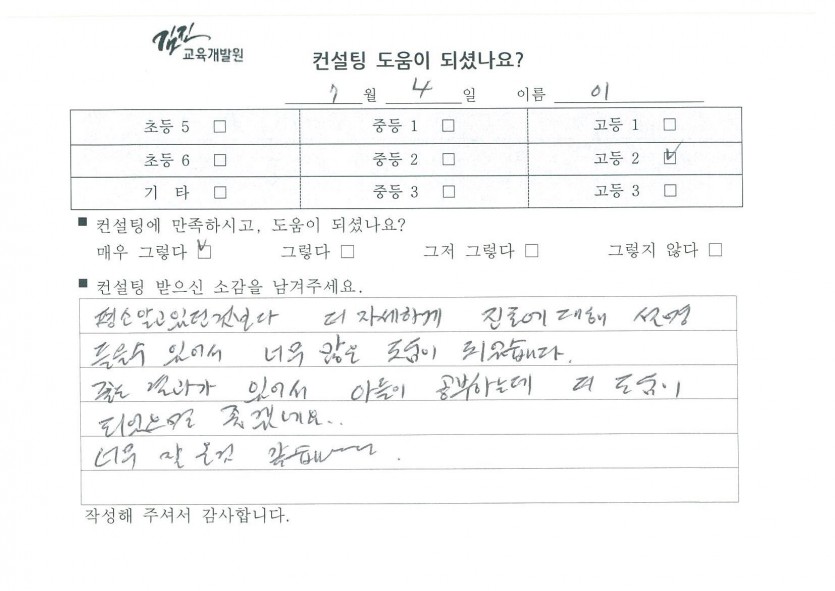 김진
교육개발원
컨설팅 도움이 되셨나요?
7 월 4 일 이름 이
초등 5 □ 중등 1 □ 고등 1 □
초등 6 □ 중등 2 □ 고등 2 ☑
기 타 □ 중등 3 □ 고등 3 □
■ 컨설팅에 만족하시고, 도움이 되셨나요?
매우 그렇다 ☑ 그렇다 □ 그저 그렇다 □ 그렇지 않다 □
■ 컨설팅 받으신 소감을 남겨주세요.
평소 알고 있던 것보다 더 자세하게 진로에 대해 설명
들을수 있어서 너무 많은 도움이 되었습니다.
좋은 결과가 있어서 아들이 공부하는데 더 도움이
되었으면 좋겠네요..
너무 잘 온것 같습니다.
작성해 주셔서 감사합니다.